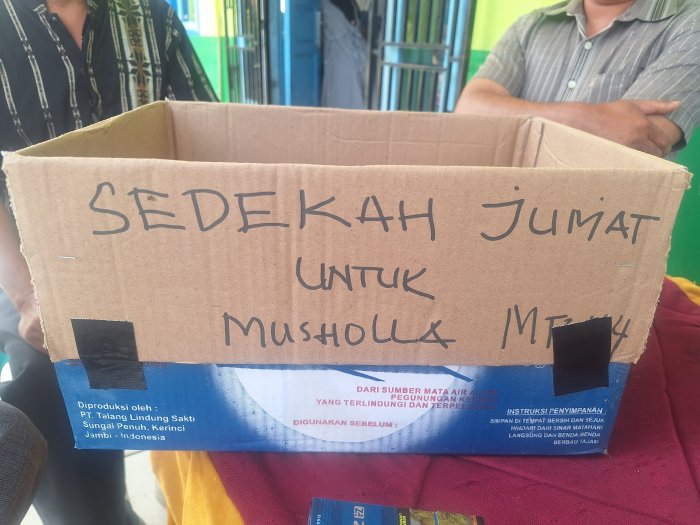 SEDEKAH JUMAT
UNTUK
MUSHOLLA
DARI SUMBER MATA AIR
PEGUNUNGAN
YANG TERLINDUNGI DAN
DIGUNAKAN SEBELUM :
Diproduksi oleh :
PT. Talang Lindung Sakti
Sungai Penuh, Kerinci
Jambi - Indonesia
INSTRUKSI PENYIMPANAN
SIMPAN DI TEMPAT BERSIH DAN SEJUK
HINDARI DARI SINAR MATAHARI
LANGSUNG DAN BENDA BENDA
BERBAU TAJAM